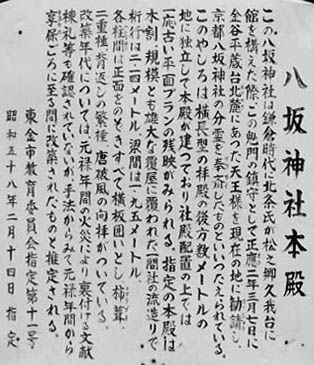 八坂神社本殿
この八坂神社は鎌倉時代に北条氏が松之郷久我台に
館を構えた際、この鬼門の鎮守として正應二年三月七日に
金谷平蔵台北麓にあった天王様を現在の地に勧請し、
京都八坂神社の分霊を奉斎したものといいつたえられている。
このやしろは横長型の拝殿の後方数メートルの
地に独立して本殿が建つており社殿配置の上では
一応古い平面プランの残映がみられる。指定の本殿は
木割、規模とも雄大な覆屋に覆われた一間社の流造りで
桁行は二・一四メートル、梁間は一・九五メートル
各柱間は正面をのぞきすべて横板囲いとし、杮葺、
二重種、背返しの繁種、唐破風の向拝がついている。
改築年代については、元禄年間の火災により裏付ける文献
棟札等も確認されていないが、手法からみて元禄年間から
享保ごろに至る間に改築されたものと推定される。
東金市教育委員会指定第十一号
昭和五十八年二月十四日 指定